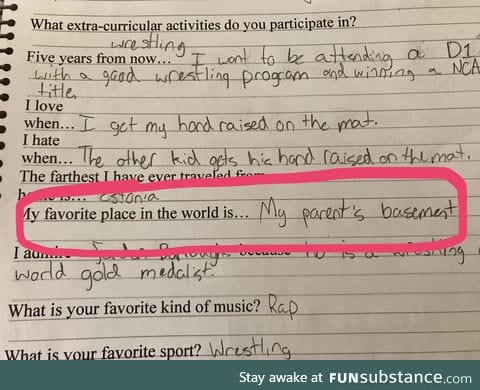 What extra-curricular activities do you participate in?
wrestling
Five years from now... I want to be attending a D1
with a good wrestling program and winning a NCA
title
I love
when... I get my hand raised on the mat.
I hate
when... The other kid gets his hand raised on the mat.
The farthest I have ever traveled from
is... Estonia
My favorite place in the world is... My parent's basement
because he is a wrestling
world gold medalist.
What is your favorite kind of music? Rap
What is your favorite sport? Wrestling
Stay awake at FUNsubstance.com